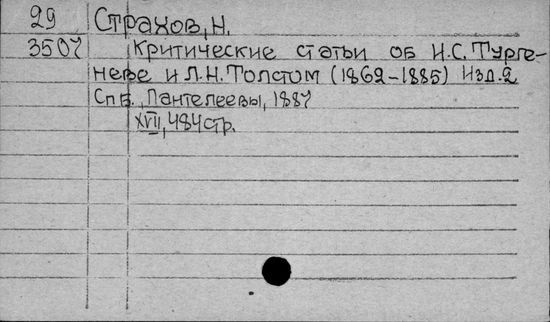 29 Страхов, Н.
3507 Критические статьи об И.С. Турге-
неве и Л.Н. Толстом (1862-1885) Изд. 2
Спб., Пантелеевы, 1887
XVII, 484 стр.